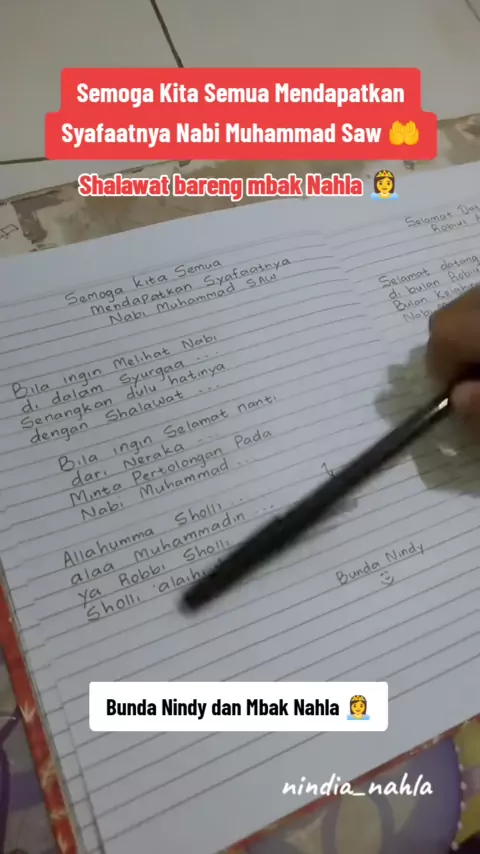 Semoga Kita Semua Mendapatkan
Syafaatnya Nabi Muhammad Saw 🤲
Shalawat bareng mbak Nahla 👸
Semoga kita Semua
Mendapatkan Syafaatnya
Nabi Muhammad SAW
Bila ingin Melihat Nabi
di dalam Syurgaa ...
Senangkan dulu hatinya
dengan Shalawat ...
Bila ingin Selamat nanti
dari Neraka ...
Minta Pertolongan Pada
Nabi Muhammad ...
Allahumma Sholli ...
alaa Muhammadin ...
Ya Robbi Sholli
Sholli 'alaihi
Selamat
Robiul
Selamat datang
di bulan
Bulan
Nabi
Bunda Nindy
Bunda Nindy dan Mbak Nahla 👸
nindia_nahla